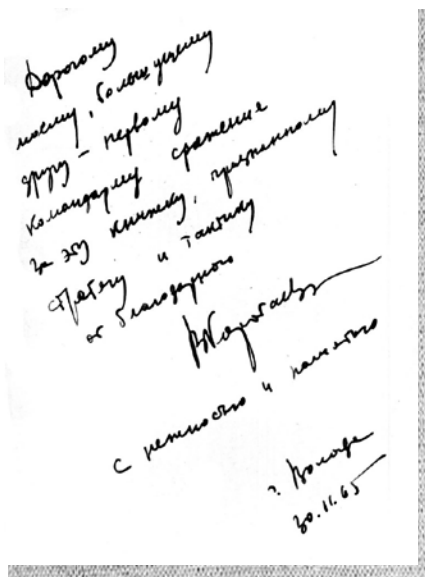 Дорогому
моему, большущему
другу – первому
командарму сражения
за эту книжку, признанному
стратегу и тактику
от благодарного
ВКоротаев
с нежностью и памятью
г. Вологда
30.11.65